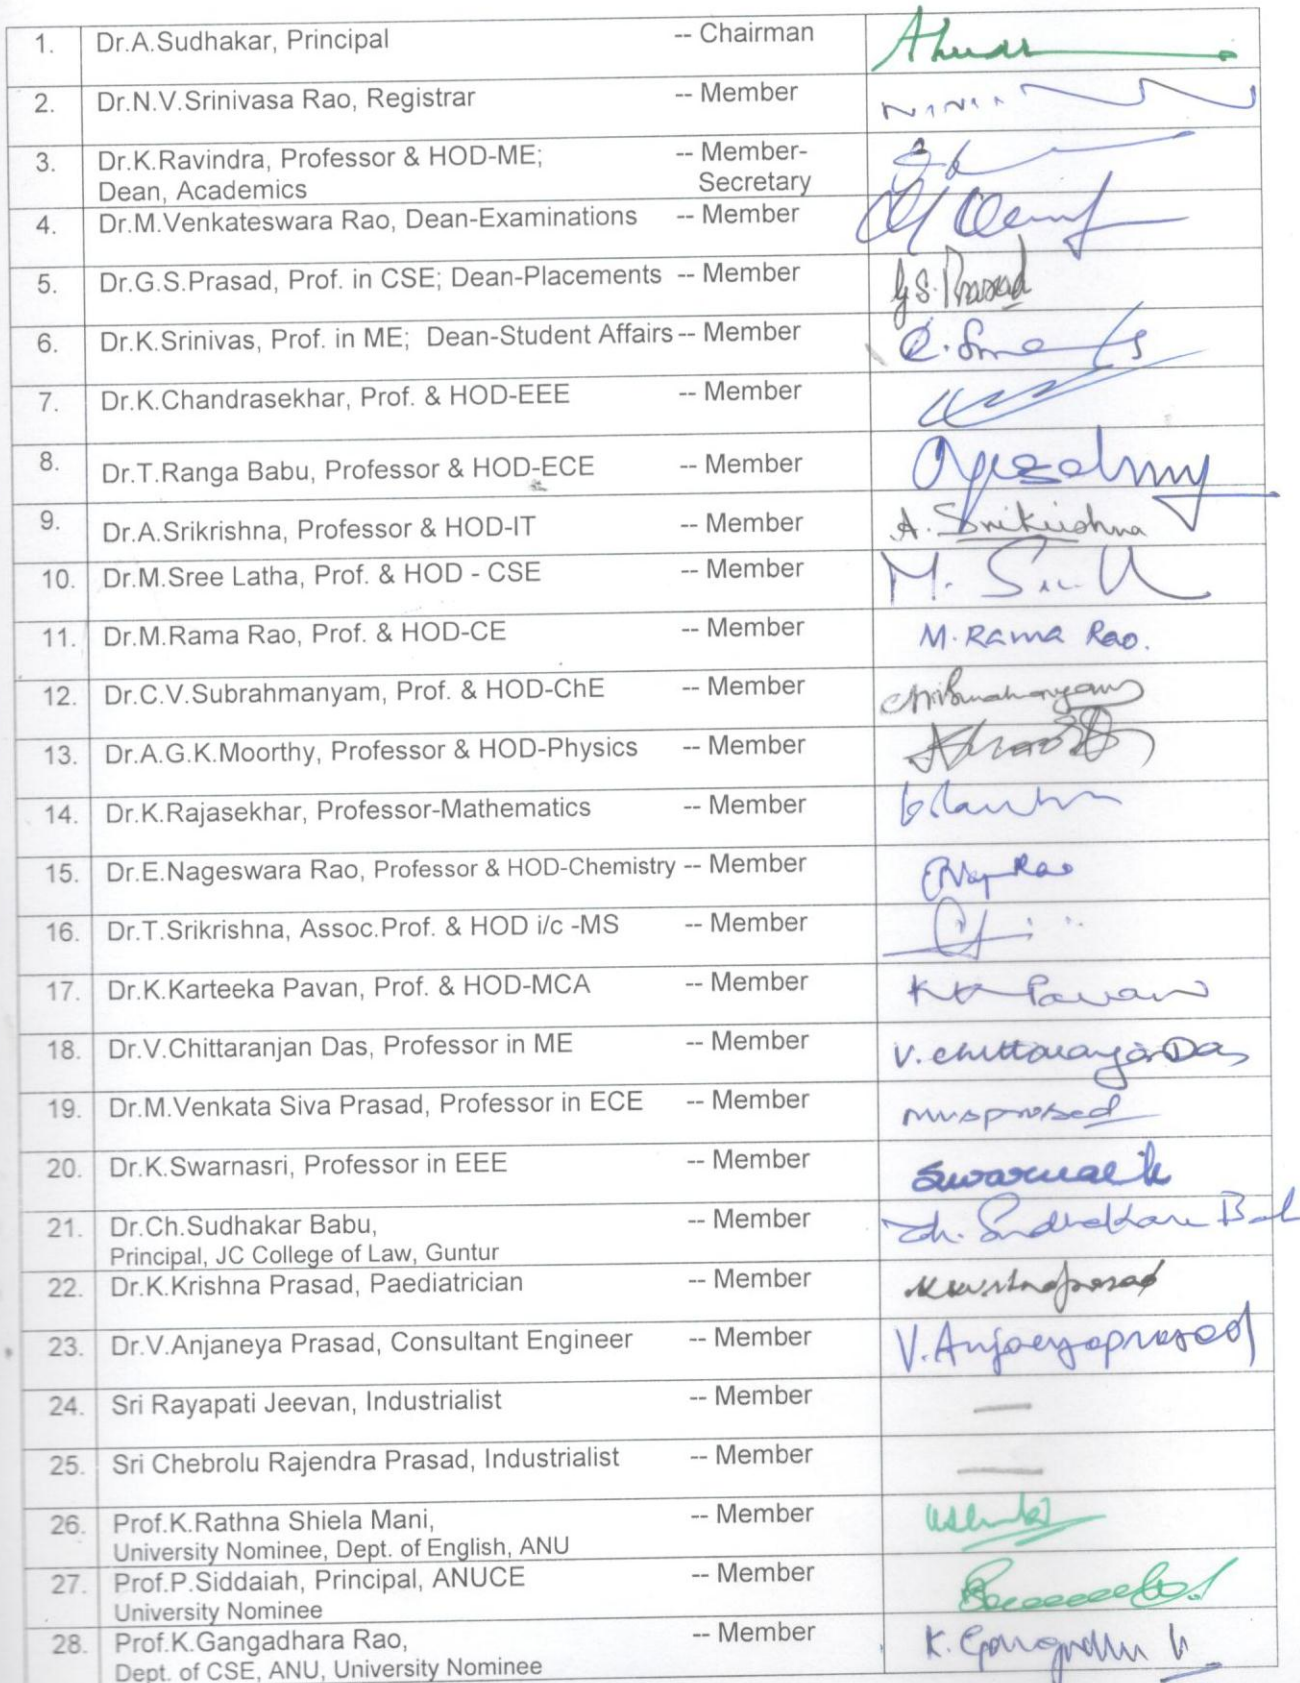 1. Dr.A.Sudhakar, Principal -- Chairman
2. Dr.N.V.Srinivasa Rao, Registrar -- Member
3. Dr.K.Ravindra, Professor & HOD-ME; -- Member-
Dean, Academics Secretary
4. Dr.M.Venkateswara Rao, Dean-Examinations -- Member
5. Dr.G.S.Prasad, Prof. in CSE; Dean-Placements -- Member G.S.Prasad
6. Dr.K.Srinivas, Prof. in ME; Dean-Student Affairs -- Member
7. Dr.K.Chandrasekhar, Prof. & HOD-EEE -- Member
8. Dr.T.Ranga Babu, Professor & HOD-ECE -- Member
9. Dr.A.Srikrishna, Professor & HOD-IT -- Member A. Srikrishna
10. Dr.M.Sree Latha, Prof. & HOD - CSE -- Member
11. Dr.M.Rama Rao, Prof. & HOD-CE -- Member M. Rama Rao.
12. Dr.C.V.Subrahmanyam, Prof. & HOD-ChE -- Member
13. Dr.A.G.K.Moorthy, Professor & HOD-Physics -- Member
14. Dr.K.Rajasekhar, Professor-Mathematics -- Member
15. Dr.E.Nageswara Rao, Professor & HOD-Chemistry -- Member
16. Dr.T.Srikrishna, Assoc.Prof. & HOD i/c -MS -- Member
17. Dr.K.Karteeka Pavan, Prof. & HOD-MCA -- Member KK Pavan
18. Dr.V.Chittaranjan Das, Professor in ME -- Member V. Chittaranjan Das
19. Dr.M.Venkata Siva Prasad, Professor in ECE -- Member mvsprasad
20. Dr.K.Swarnasri, Professor in EEE -- Member
21. Dr.Ch.Sudhakar Babu, -- Member Ch. Sudhakar
Principal, JC College of Law, Guntur
22. Dr.K.Krishna Prasad, Paediatrician -- Member
23. Dr.V.Anjaneya Prasad, Consultant Engineer -- Member V. Anjaeyaprasad
24. Sri Rayapati Jeevan, Industrialist -- Member —
25. Sri Chebrolu Rajendra Prasad, Industrialist -- Member —
26. Prof.K.Rathna Shiela Mani, -- Member
University Nominee, Dept. of English, ANU
27. Prof.P.Siddaiah, Principal, ANUCE -- Member
University Nominee
28. Prof.K.Gangadhara Rao, -- Member
Dept. of CSE, ANU, University Nominee